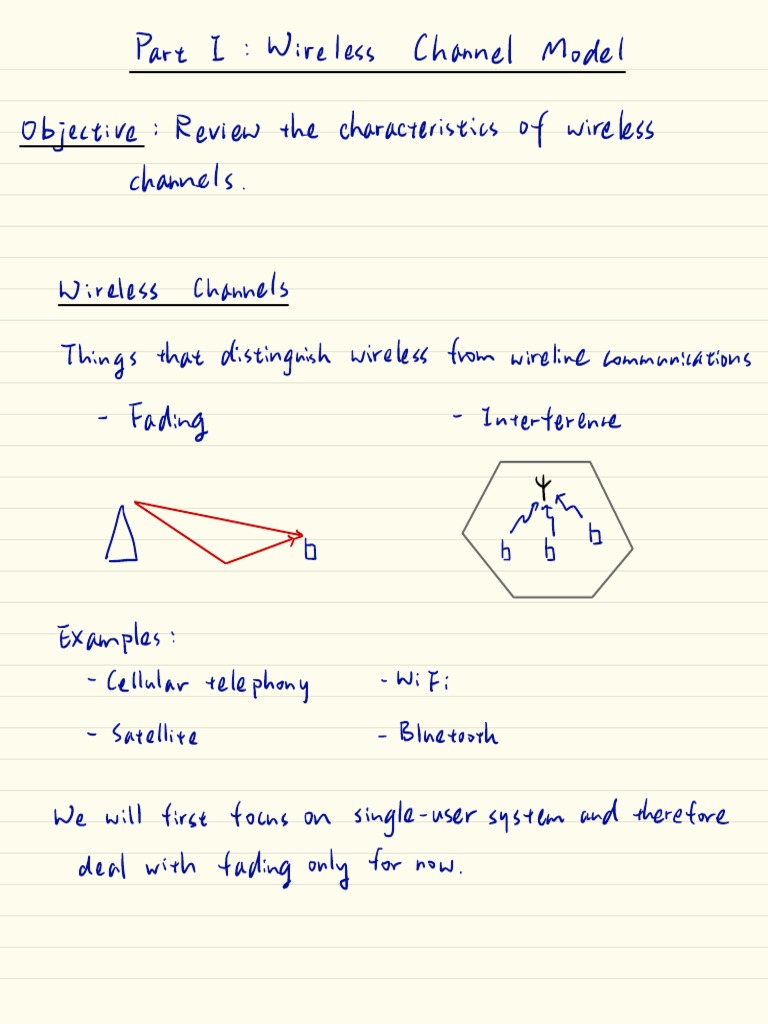 Part I : Wireless Channel Model
Objective : Review the characteristics of wireless
channels.
Wireless Channels
Things that distinguish wireless from wireline communications
- Fading
- Interference
Examples :
- Cellular telephony
- WiFi
- Satellite
- Bluetooth
We will first focus on single-user system and therefore
deal with fading only for now.